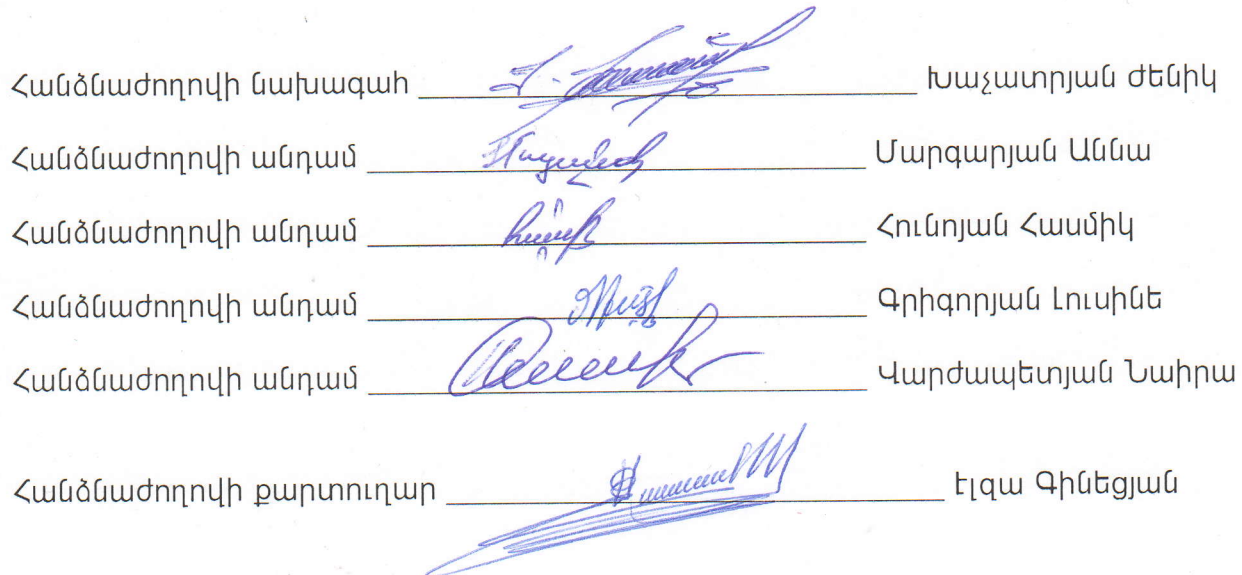 Հանձնաժողովի նախագահ Խաչատրյան Ժենիկ
Հանձնաժողովի անդամ Մարգարյան Աննա
Հանձնաժողովի անդամ Հունոյան Հասմիկ
Հանձնաժողովի անդամ Գրիգորյան Լուսինե
Հանձնաժողովի անդամ Վարժապետյան Նաիրա
Հանձնաժողովի քարտուղար Էլզա Գինեցյան